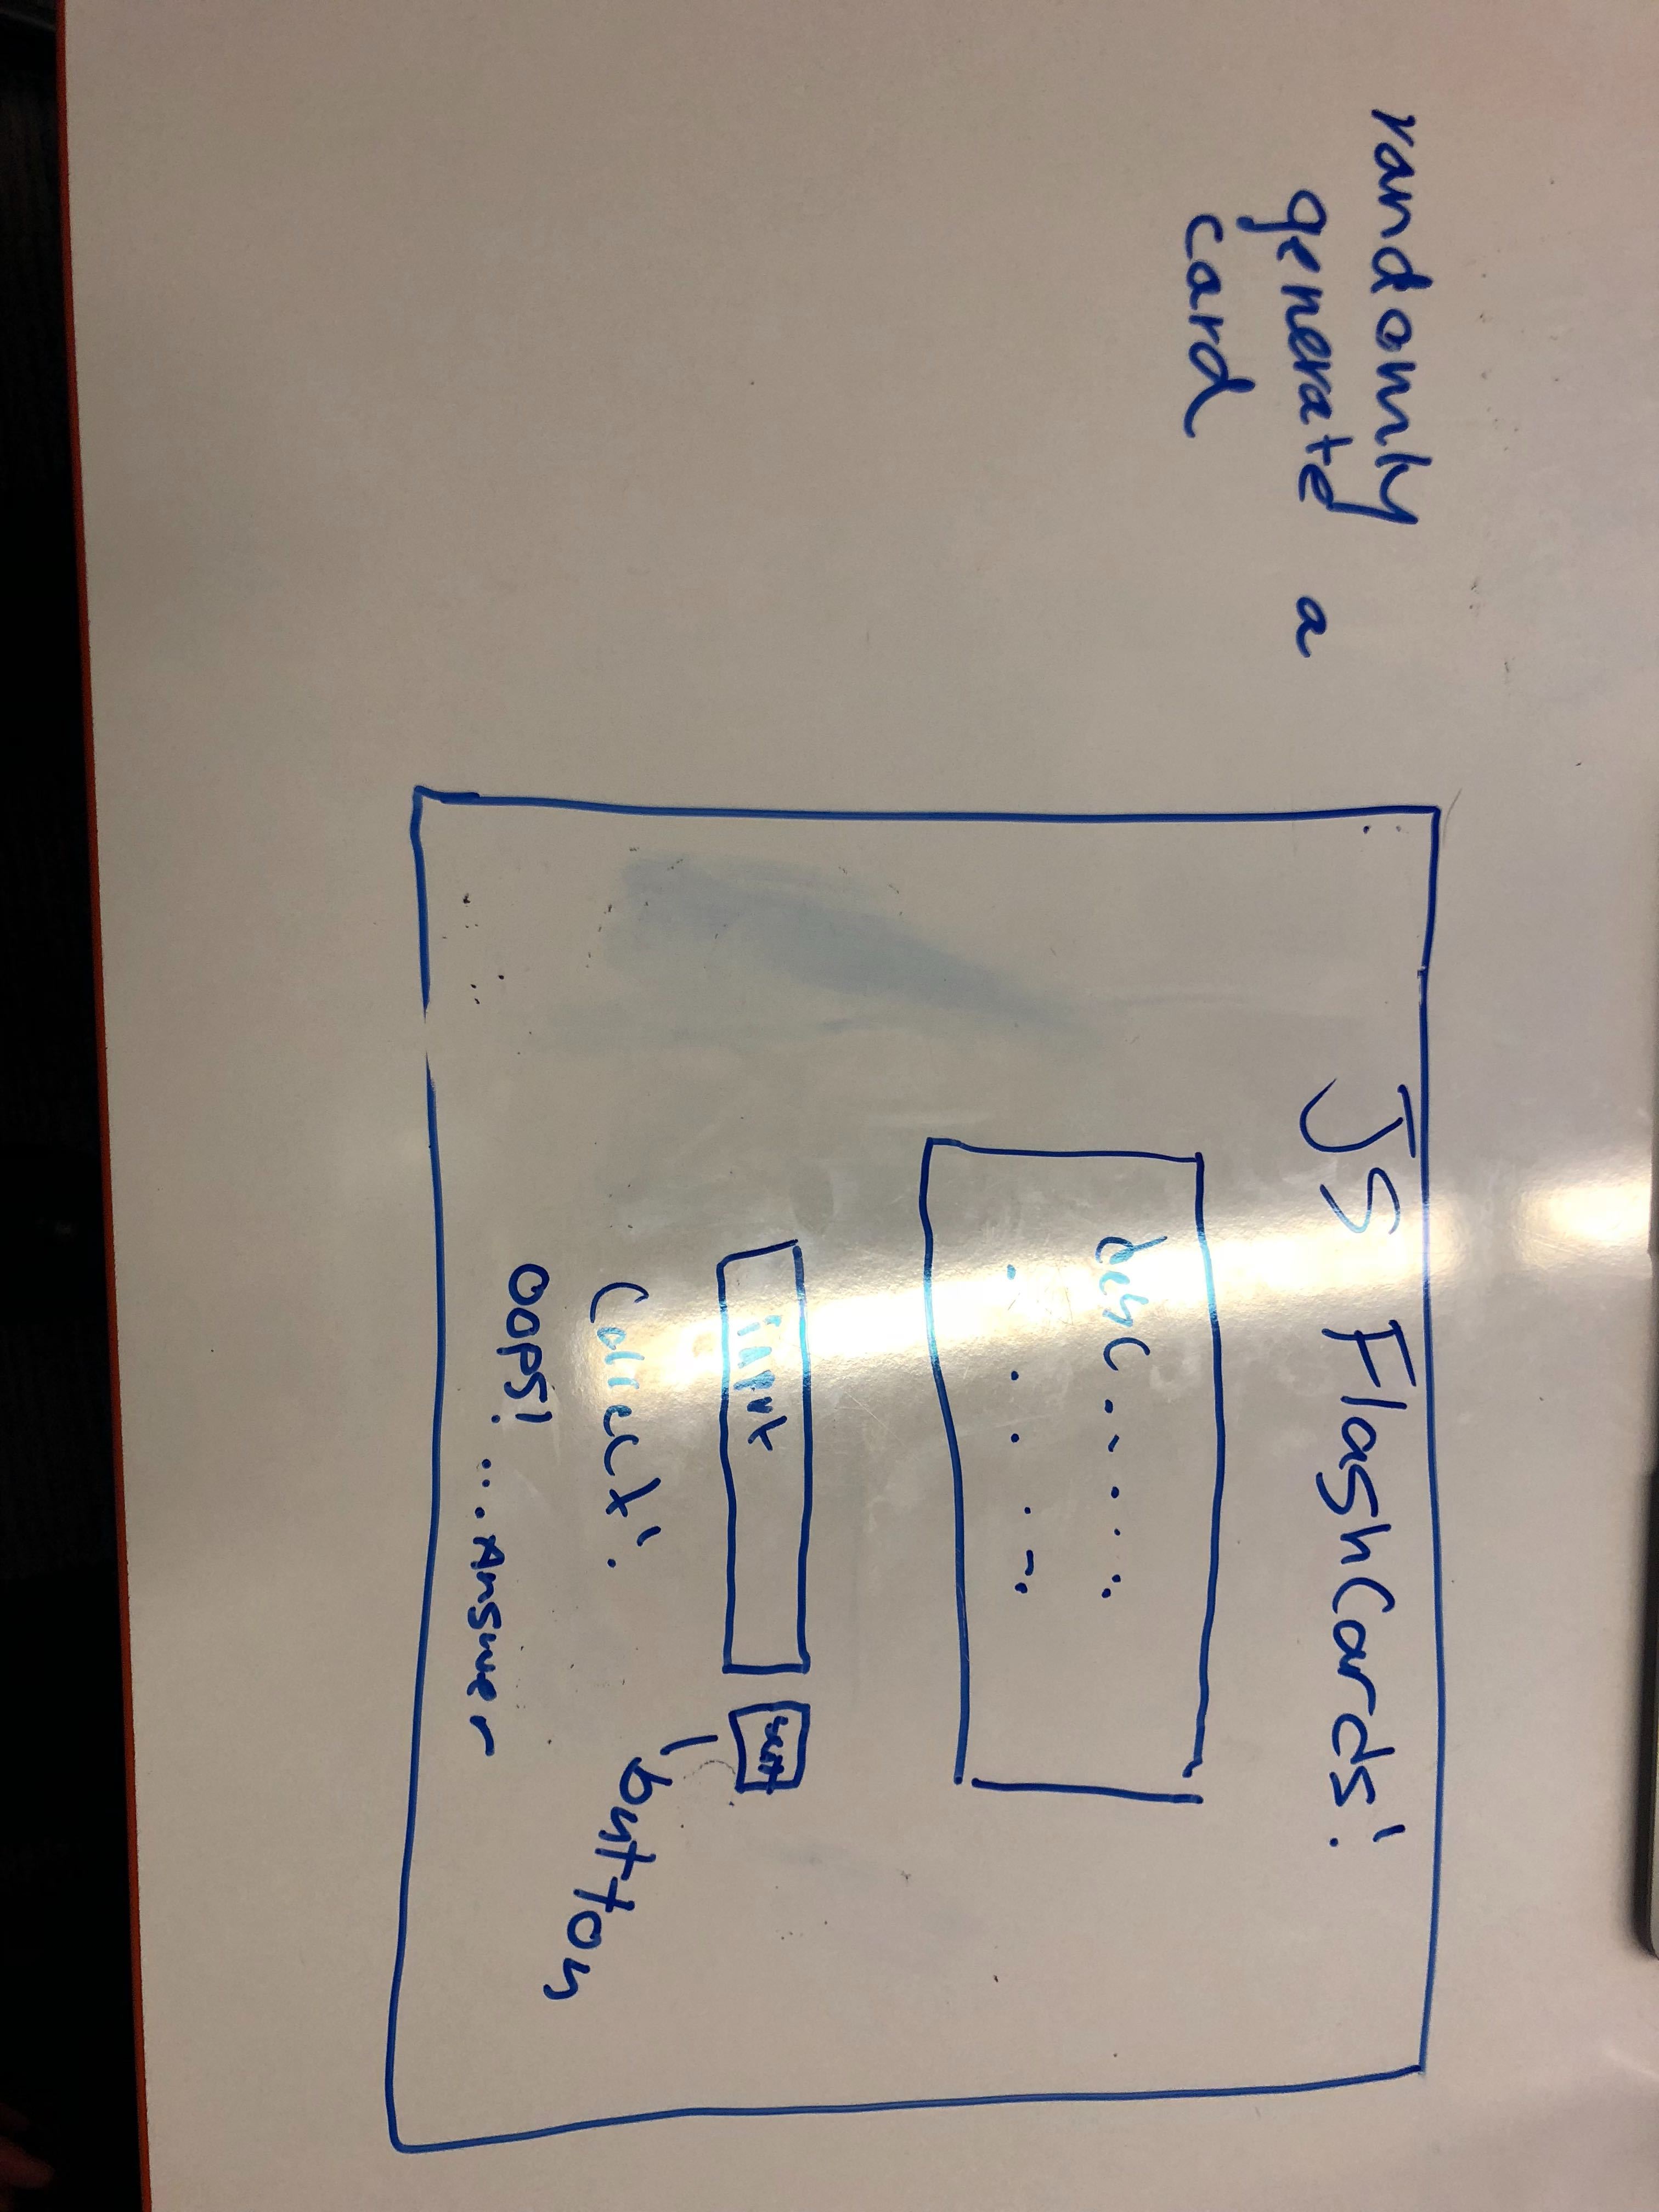 randomly
generate a
card
JS FlashCards!
desc......
. . . . -.
input
Correct!
button
OOPS!
...Answer